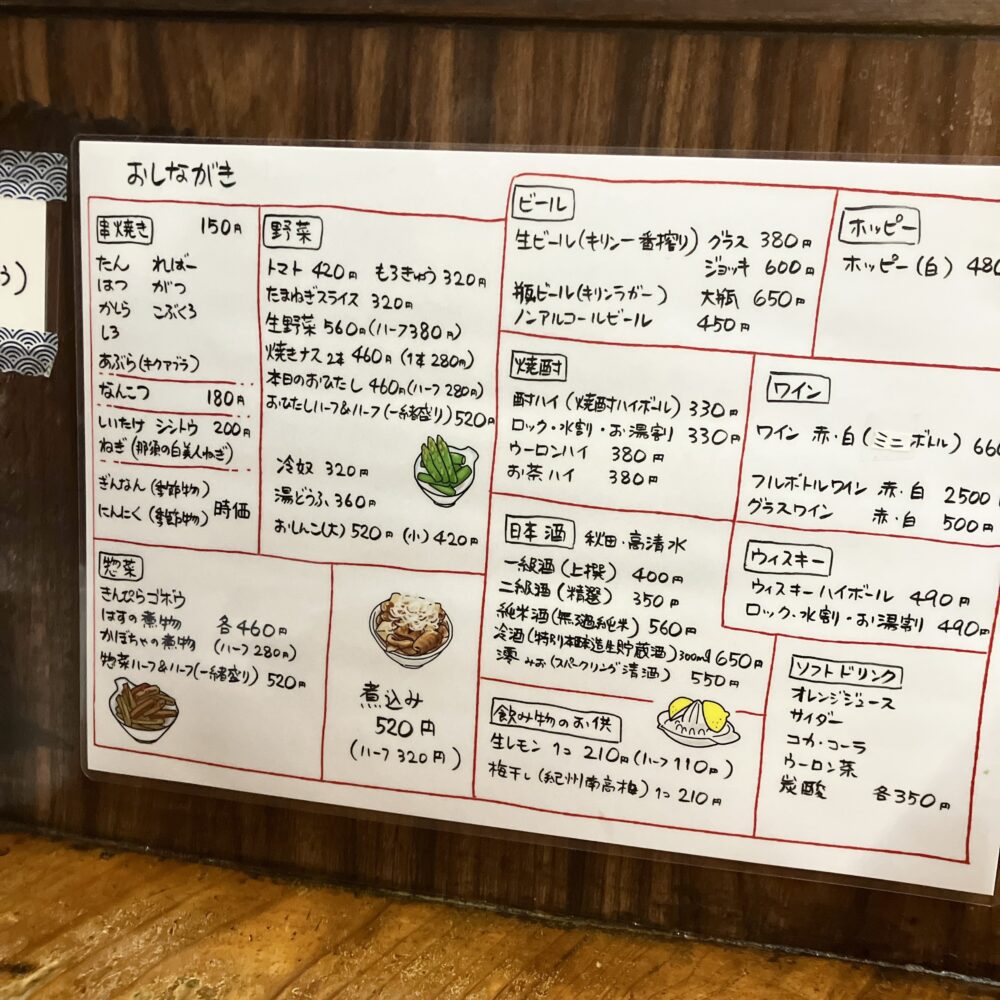 おしながき
串焼き 150円
たん ればー
はつ がつ
かしら こぶくろ
しろ
あぶら(キクアブラ)
なんこつ 180円
しいたけ シシトウ 200円
ねぎ(那須の白美人ねぎ)
ぎんなん(季節物)
にんにく(季節物) 時価
野菜
トマト 420円 もろきゅう 320円
たまねぎスライス 320円
生野菜 560円(ハーフ380円)
焼きナス 2本 460円 (1本 280円)
本日のおひたし 460円(ハーフ 280円)
おひたしハーフ&ハーフ(一緒盛り) 520円
冷奴 320円
湯どうふ 360円
おしんこ(大) 520円 (小) 420円
惣菜
きんぴらゴボウ
はすの煮物 各460円
かぼちゃの煮物 (ハーフ 280円)
惣菜ハーフ&ハーフ(一緒盛り) 520円
煮込み
520円
(ハーフ 320円)
ビール
生ビール(キリン一番搾り) グラス 380円
ジョッキ 600円
瓶ビール(キリンラガー) 大瓶 650円
ノンアルコールビール 450円
ホッピー
ホッピー(白) 480
焼酎
酎ハイ(焼酎ハイボール) 330円
ロック・水割・お湯割 330円
ウーロンハイ 380円
お茶ハイ 380円
ワイン
ワイン 赤・白(ミニボトル) 660
フルボトルワイン 赤・白 2500
グラスワイン 赤・白 500円
日本酒 秋田・高清水
一級酒(上撰) 400円
二級酒(精選) 350円
純米酒(無濾過純米) 560円
冷酒(特別本醸造生貯蔵酒)300ml 650円
澪 みお(スパークリング清酒) 550円
ウィスキー
ウィスキーハイボール 490円
ロック・水割・お湯割 490円
飲み物のお供
生レモン 1コ 210円(ハーフ 110円)
梅干し(紀州南高梅) 1コ 210円
ソフトドリンク
オレンジジュース
サイダー
コカ・コーラ
ウーロン茶
炭酸 各350円